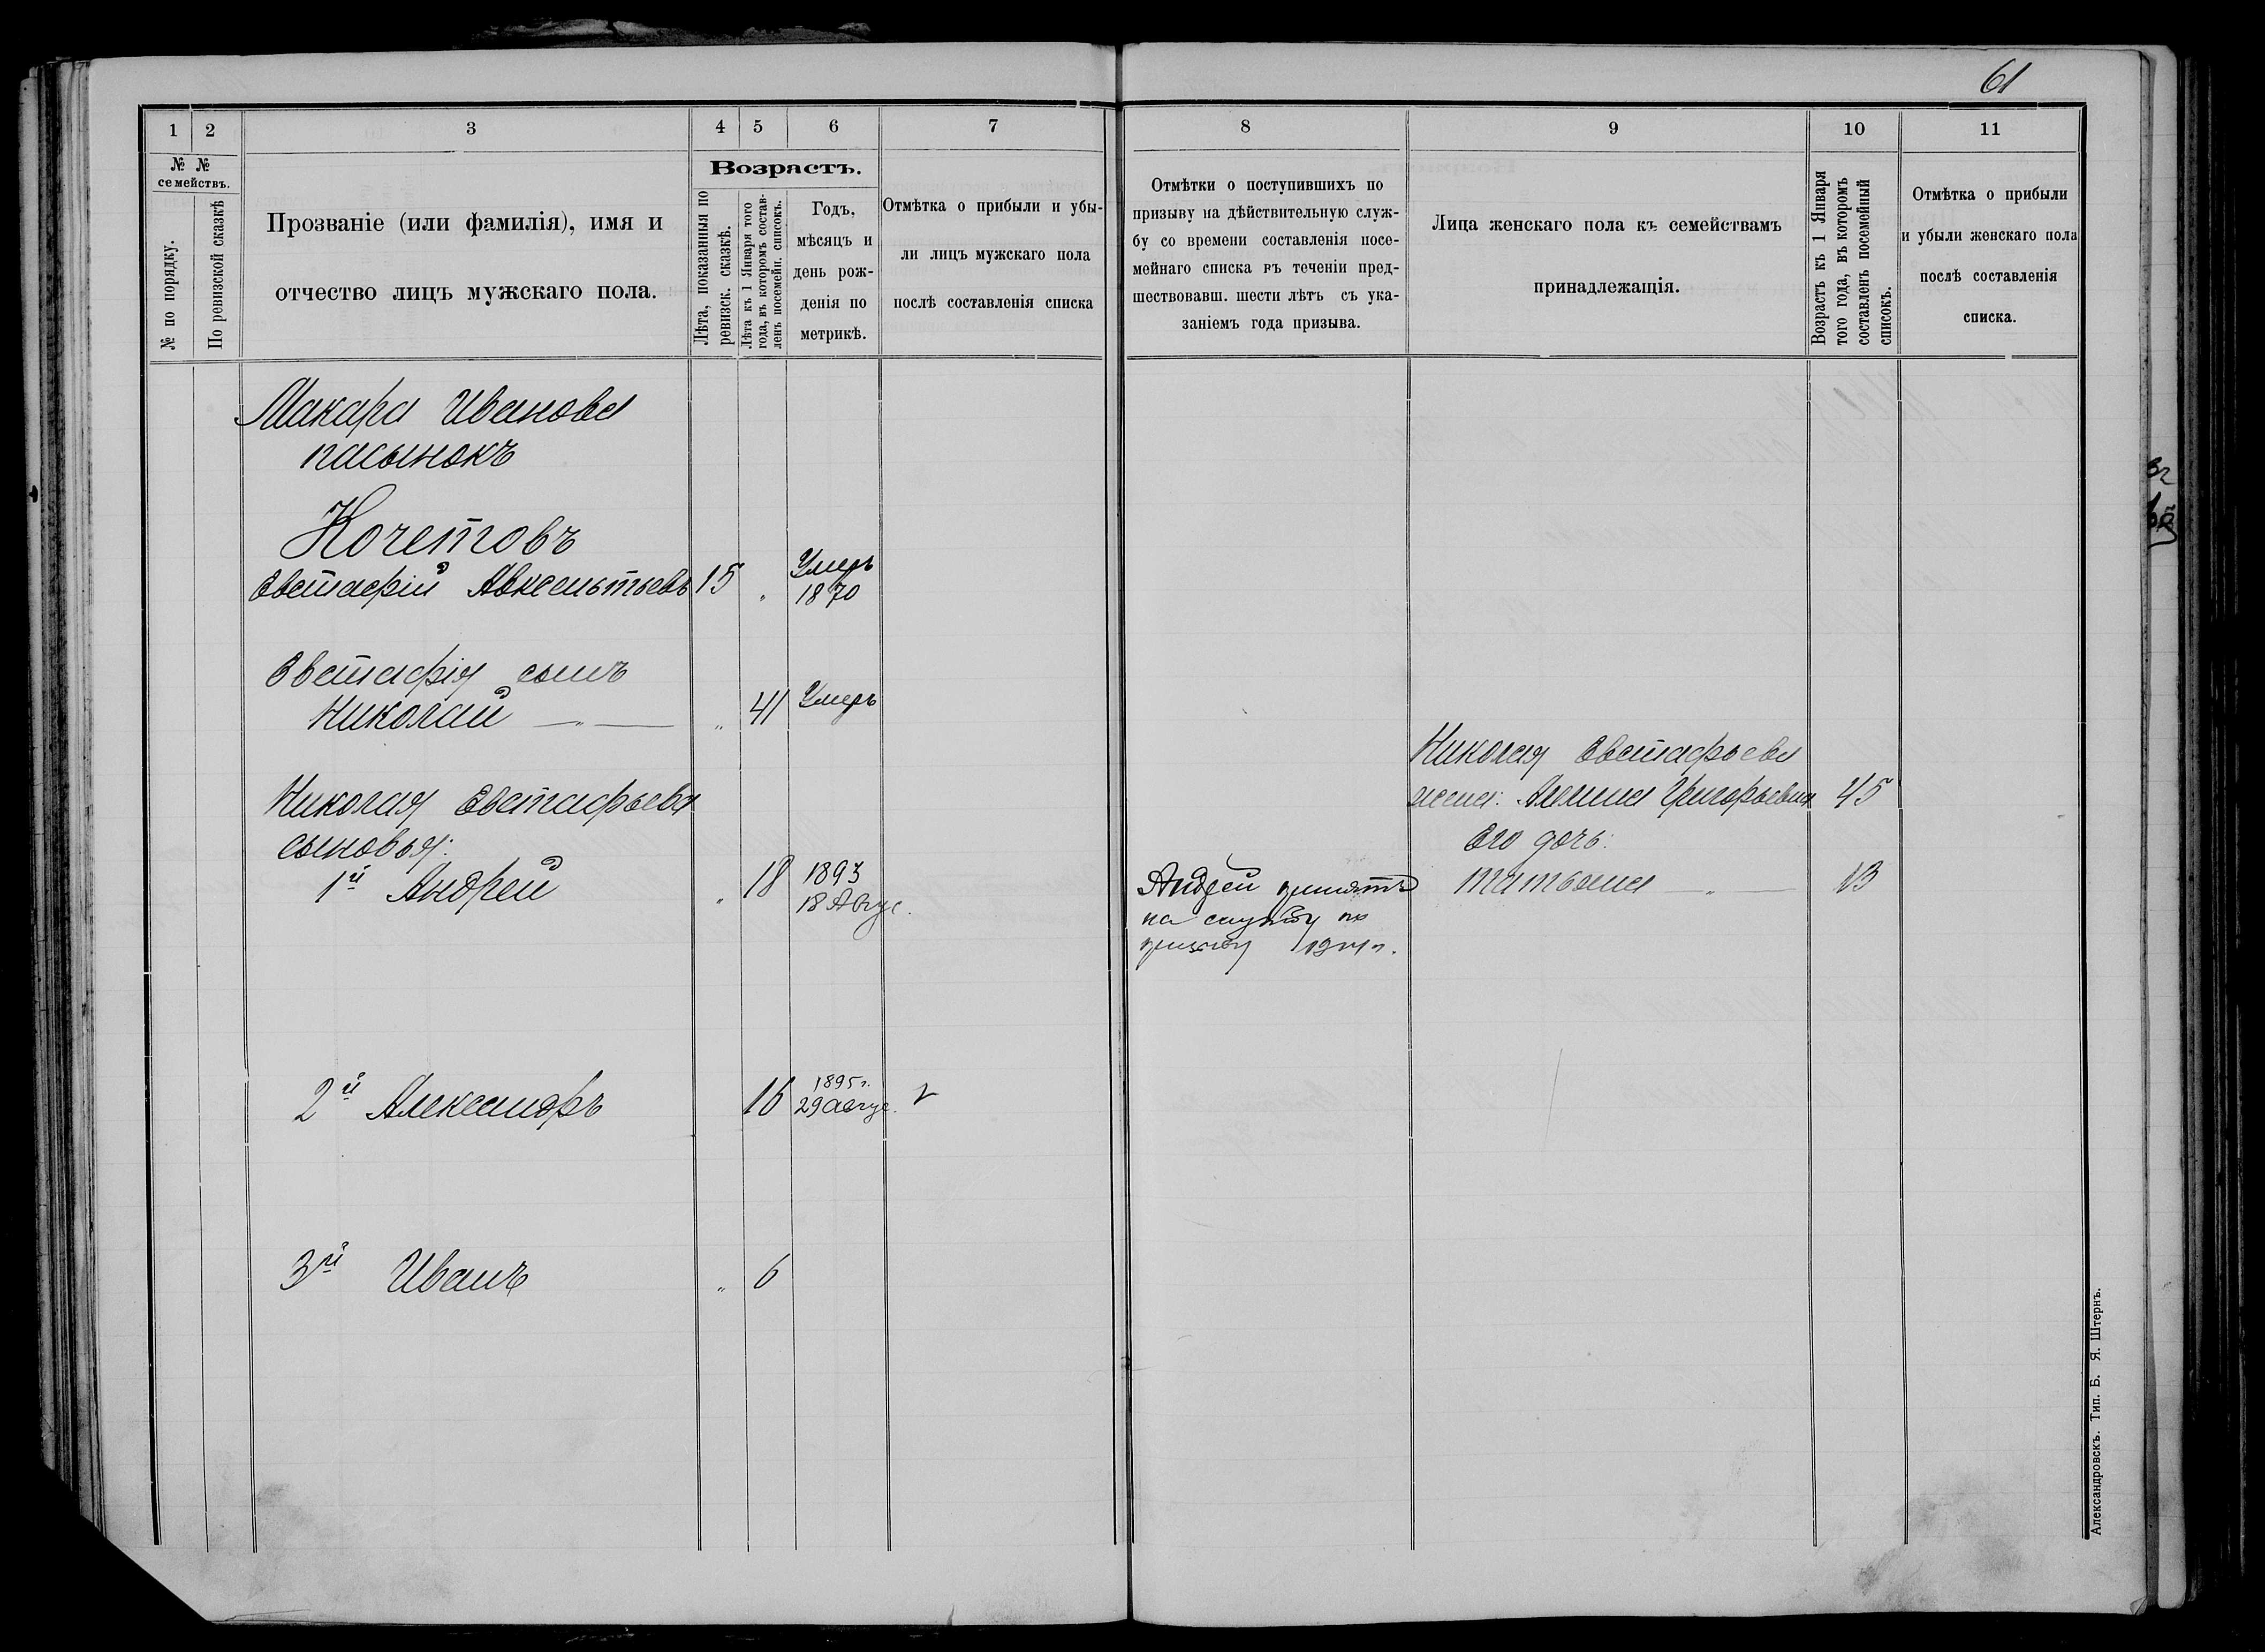 61
1 2 3 4 5 6 7
№ № семействъ.
№ по порядку.
По ревизской сказкѣ
Прозваніе (или фамилія), имя и
отчество лицъ мужскаго пола.
Возрастъ.
Лѣта, показанныя по
ревизск. сказкѣ.
Лѣта къ 1 Января того
года, въ которомъ состав-
ленъ посемейн. списокъ.
Годъ,
мѣсяцъ и
день рож-
денія по
метрикѣ.
Отмѣтка о прибыли и убы-
ли лицъ мужскаго пола
послѣ составленія списка
Макара Иванова
пасынокъ
Кочетовъ
Евстафій Авксентьевъ 15 „ Умеръ
1870
Евстафія сынъ
Николай — „ — „ 41 Умеръ
Николая Евстафьева
сыновья:
1й Андрей „ 18 1893
18 Авгус.
2й Александръ 16 1895 г.
29 Авгус.
3й Иванъ „ 6
8 9 10 11
Отмѣтки о поступившихъ по
призыву на дѣйствительную служ-
бу со времени составленія посе-
мейнаго списка въ теченіи пред-
шествовавш. шести лѣтъ съ ука-
заніемъ года призыва.
Лица женскаго пола къ семействамъ
принадлежащія.
Возрастъ къ 1 Января
того года, въ которомъ
составленъ посемейный
списокъ.
Отмѣтка о прибыли
и убыли женскаго пола
послѣ составленія
списка.
Николая Евстафьева
жена: Григорьевна 45
Его дочь:
Татьяна — „ — 13
Андрей принятъ
на службу по
призыву
Александровскъ. Тип. Б. Я. Штернъ.